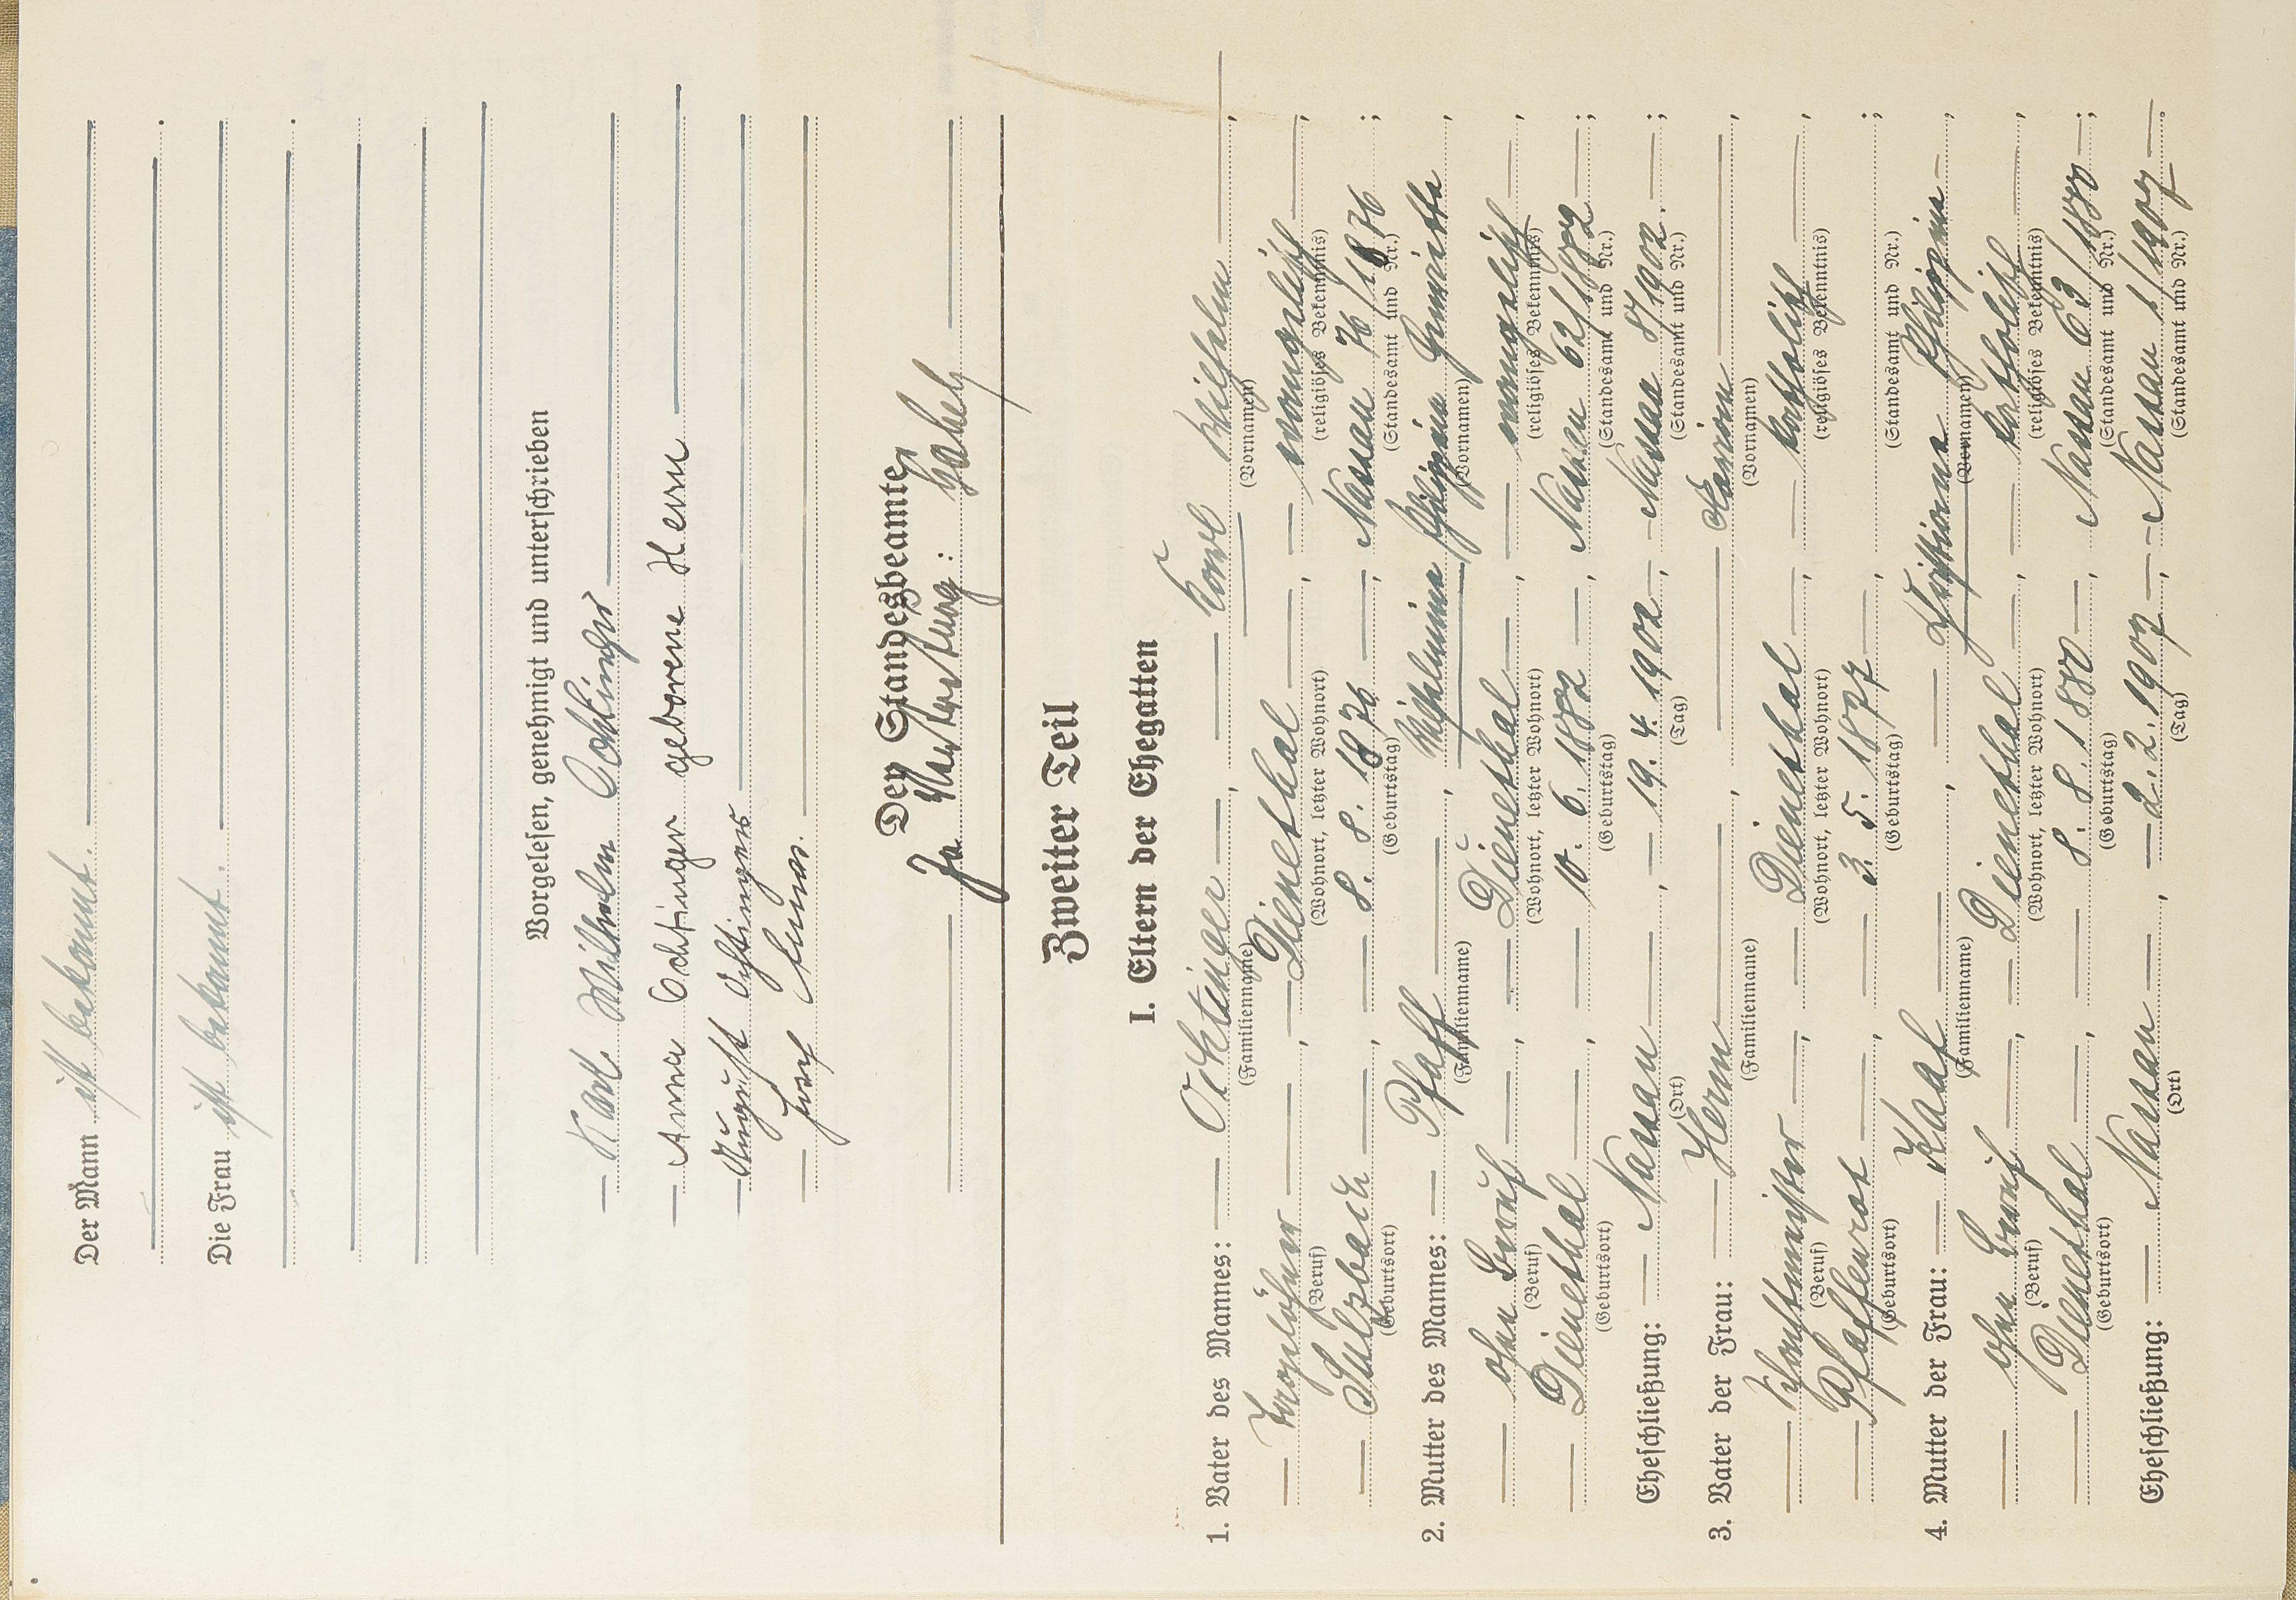 Der Mann ist bekannt.
Die Frau ist bekannt.
Vorgelesen, genehmigt und unterschrieben
Karl Wilhelm Ochtinger
Anna Ochtinger geborene Herm
August Ochtinger
Josef
Der Standesbeamte
In Vertretung: Gabel
Zweiter Teil
I. Eltern der Ehegatten
1. Vater des Mannes: Ochtinger, Karl Wilhelm,
(Familienname) (Vornamen)
Dienethal, evangelisch,
(Beruf) (Wohnort, letzter Wohnort) (religiöses Bekenntnis)
Sulzbach, 8. 8. 1876, Nassau 76/1876;
(Geburtsort) (Geburtstag) (Standesamt und Nr.)
2. Mutter des Mannes: Pfaff, Wilhelmine Philippine Henriette,
(Familienname) (Vornamen)
ohne Beruf, Dienethal, evangelisch,
(Beruf) (Wohnort, letzter Wohnort) (religiöses Bekenntnis)
Dienethal, 10. 6. 1882, Nassau 62/1882;
(Geburtsort) (Geburtstag) (Standesamt und Nr.)
Eheschließung: Nassau, 19. 4. 1902, Nassau 8/1902.;
(Ort) (Tag) (Standesamt und Nr.)
3. Vater der Frau: Herm,
(Familienname) (Vornamen)
Dienethal, katholisch,
(Beruf) (Wohnort, letzter Wohnort) (religiöses Bekenntnis)
Pfaffenrot, 3. 5. 1877,;
(Geburtsort) (Geburtstag) (Standesamt und Nr.)
4. Mutter der Frau: Kaaf, Christiane Philippine,
(Familienname) (Vornamen)
ohne Beruf, Dienethal, katholisch,
(Beruf) (Wohnort, letzter Wohnort) (religiöses Bekenntnis)
Dienethal, 8. 8. 1880, Nassau 63/1880;
(Geburtsort) (Geburtstag) (Standesamt und Nr.)
Eheschließung: Nassau, 2. 2. 1907, Nassau 1/1907.
(Ort) (Tag) (Standesamt und Nr.)